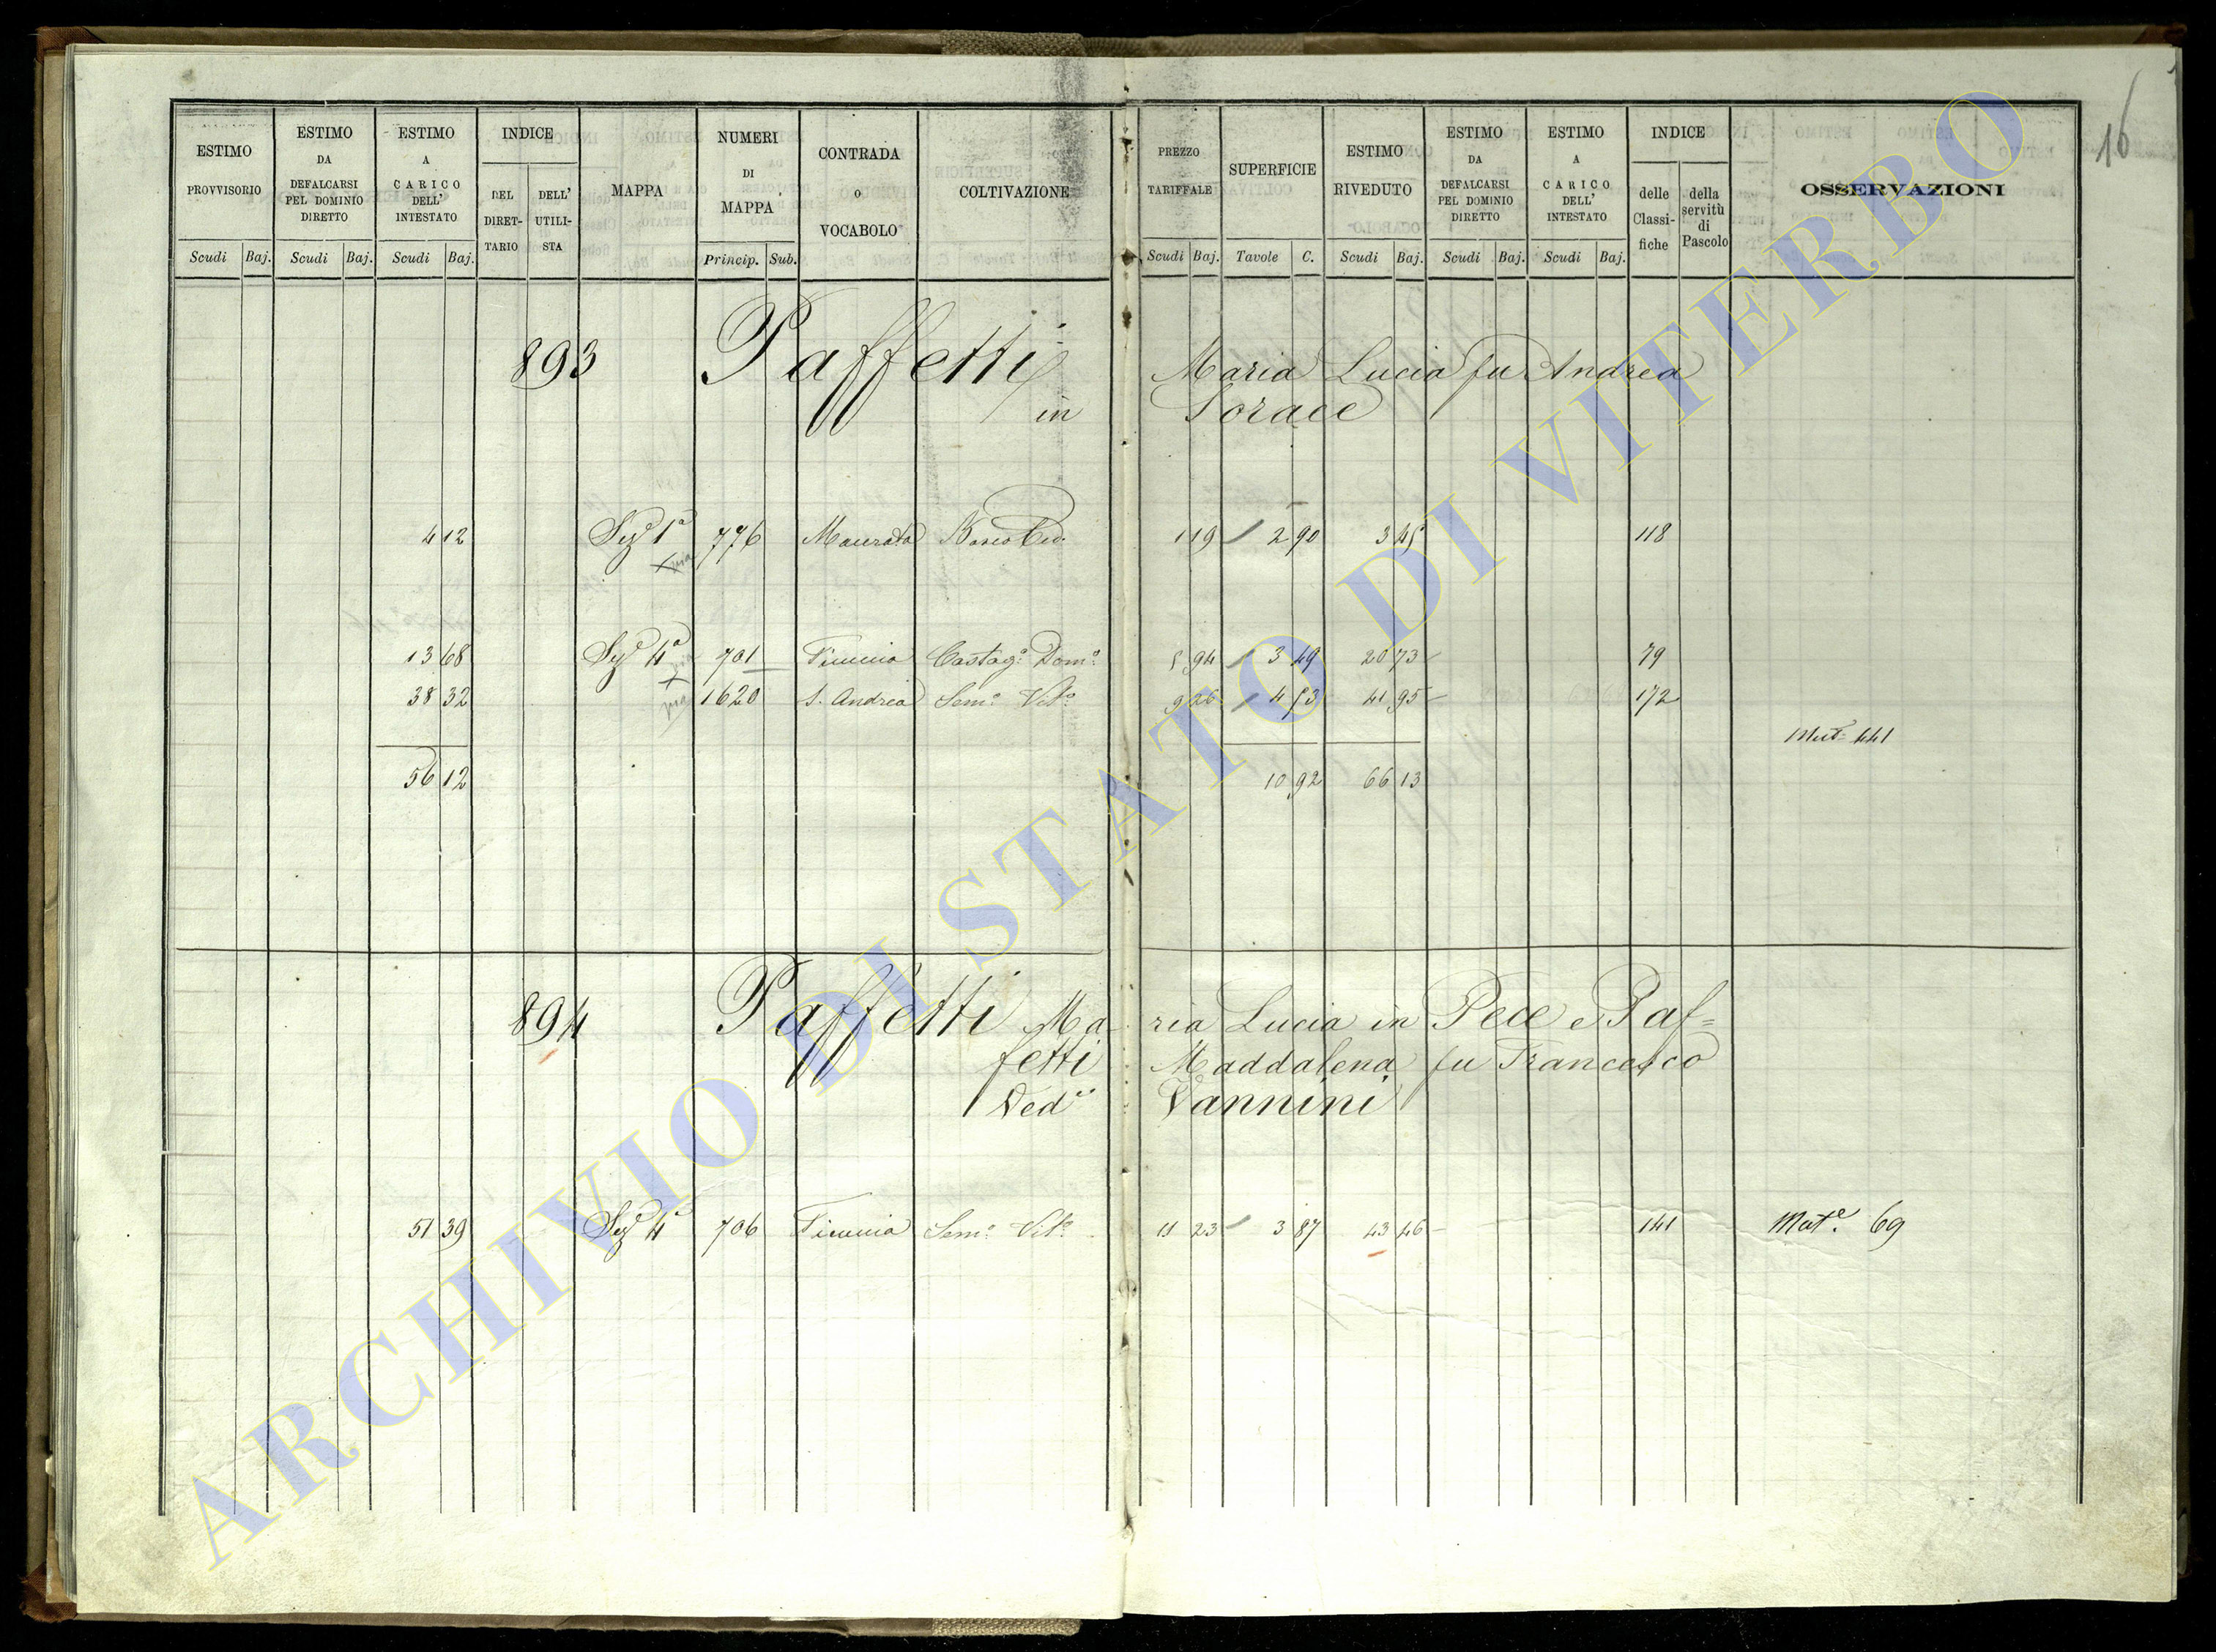 16
ESTIMO PROVVISORIO
ESTIMO DA DEFALCARSI PEL DOMINIO DIRETTO
ESTIMO A CARICO DELL' INTESTATO
INDICE
DEL DIRETTARIO
DELL' UTILISTA
MAPPA
NUMERI DI MAPPA
CONTRADA O VOCABOLO
COLTIVAZIONE
PREZZO TARIFFALE
SUPERFICIE
ESTIMO RIVEDUTO
ESTIMO DA DEFALCARSI PEL DOMINIO DIRETTO
ESTIMO A CARICO DELL' INTESTATO
INDICE
delle Classifiche
della servitù di Pascolo
OSSERVAZIONI
Scudi Baj. Scudi Baj. Scudi Baj. Princip. Sub. Scudi Baj. Tavole C. Scudi Baj. Scudi Baj. Scudi Baj.
893 Paffetti Maria Lucia fu Andrea
in Sorace
4 12 Sezº 1ª 776 1 19 2 90 3 45 118
13 68 Sezº 4ª 701 Castagº Domº 5 94 3 49 20 73 79
38 32 1620 S. Andrea Semº Vitº 9 26 4 53 41 95 172
Mut. 441
56 12 10 92 66 13
894 Paffetti Maria Lucia in Pece e Paf=
fetti Maddalena fu Francesco
Vedª Vannini
51 39 Sezº 4ª 706 Semº Vitº 11 23 3 87 43 46 141 Mutª. 69
ARCHIVIO DI STATO DI VITERBO